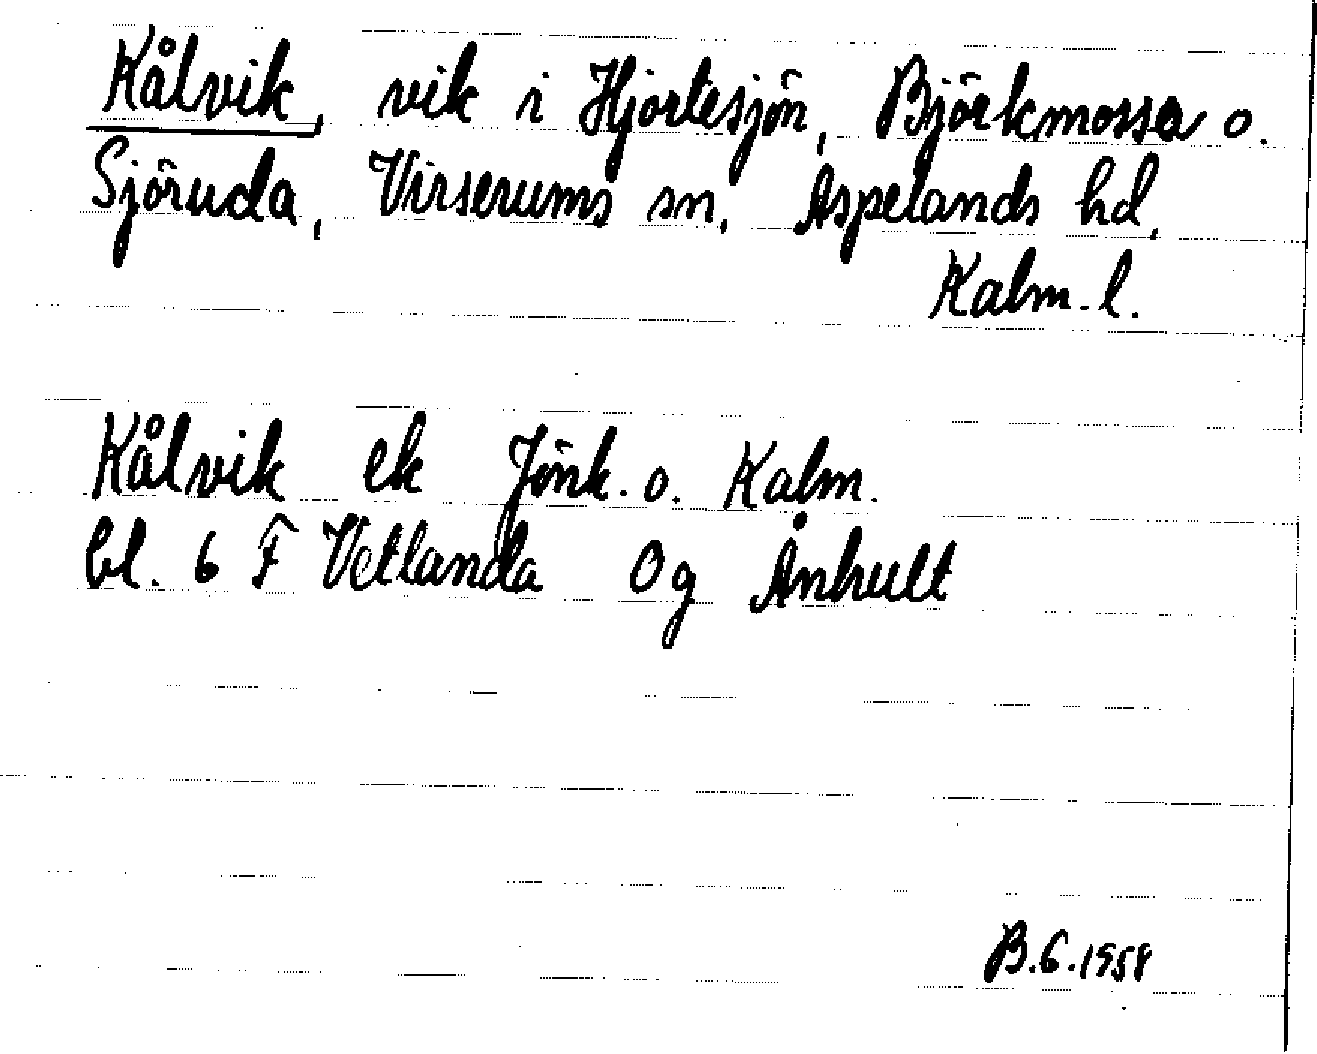 Kålvik, vik i Hjortesjön, Björkmossa o.
Sjöruda, Virserums sn, Aspelands hd,
Kalm. l.
Kålvik ek Jönk. o. Kalm.
bl. 6 F Vetlanda Og Ånhult
B.G.1958